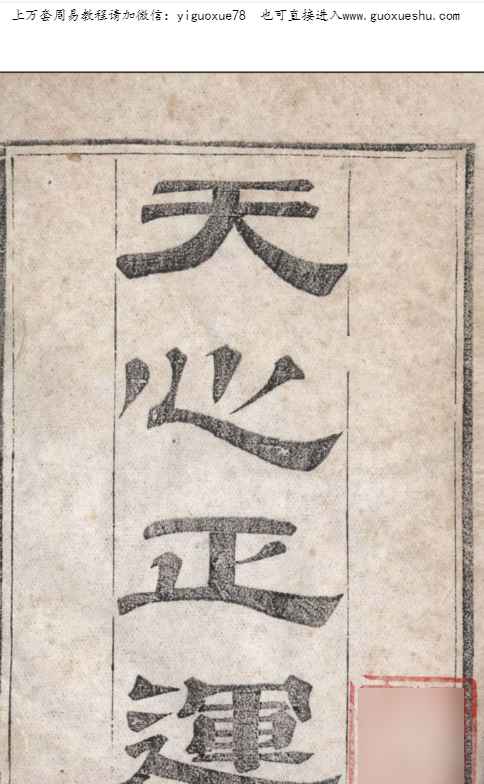 上万套周易教程请加微信：yiguoxue78　也可直接进入www.guoxueshu.com
天心正運